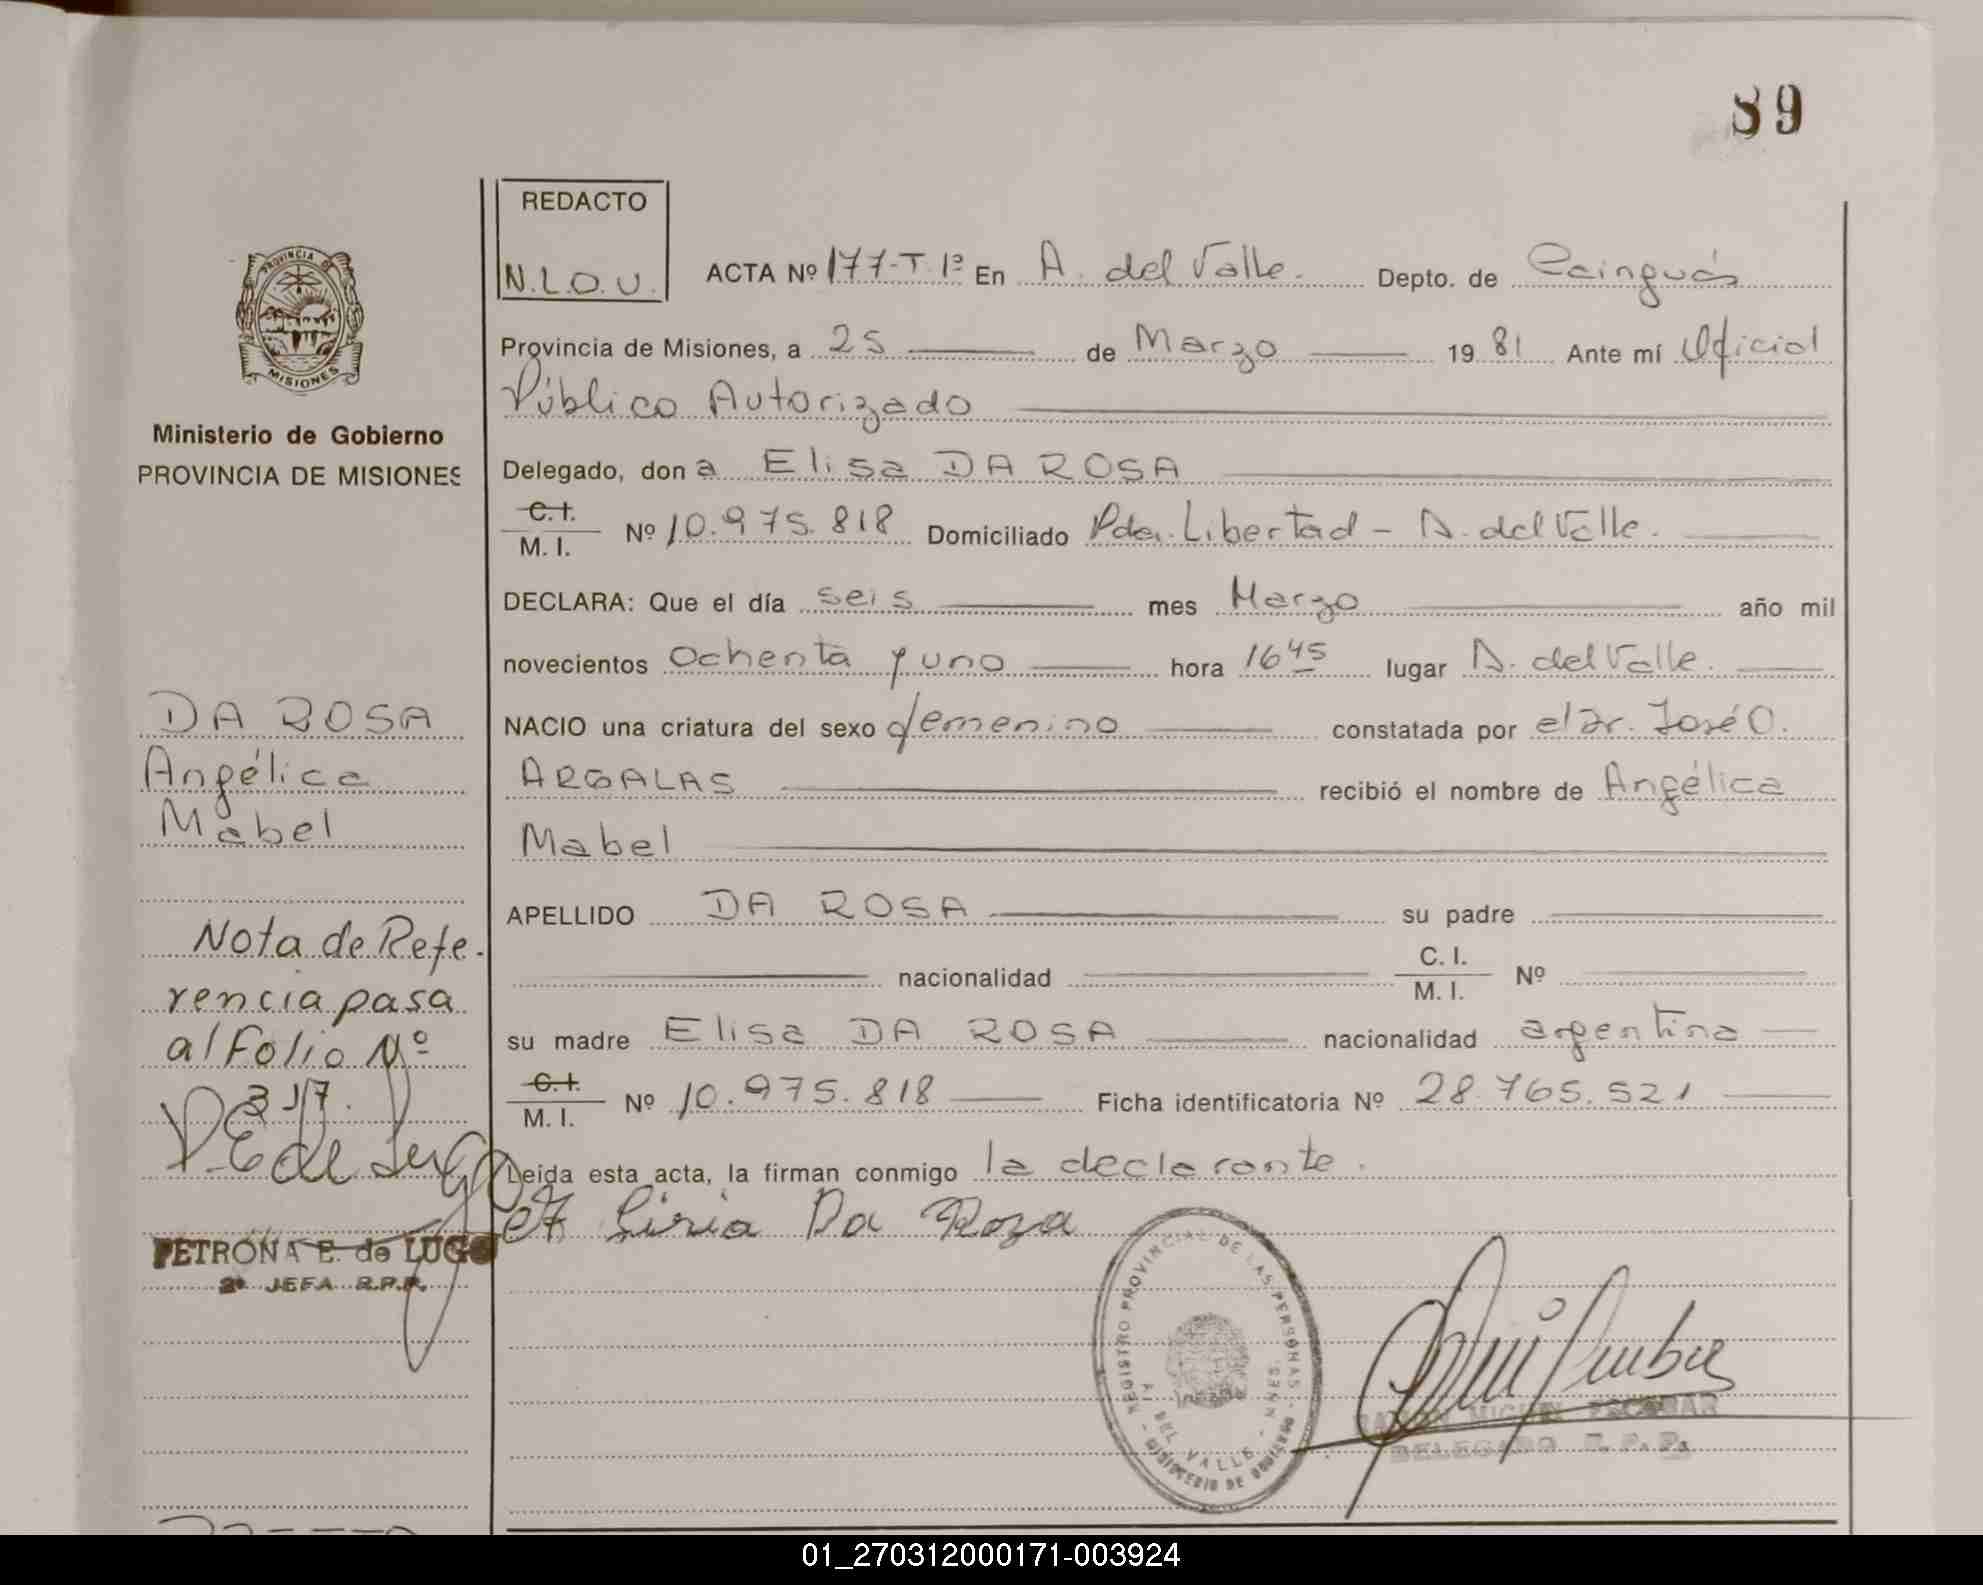 89
REDACTO
N.L.O.U.
ACTA Nº 177-T.1º En A. del Valle. Depto. de Cainguás
Provincia de Misiones, a 25 de Marzo 1981 Ante mí Oficial
Público Autorizado
Delegado, don a Elisa DA ROSA
C.I.
M. I. Nº 10.975.818 Domiciliado Pda. Libertad - A. del Valle.
DECLARA: Que el día seis mes Marzo año mil
novecientos ochenta y uno hora 16 45 lugar A. del Valle.
NACIO una criatura del sexo femenino constatada por el Dr. José O.
ARGALAS recibió el nombre de Angélica
Mabel
APELLIDO DA ROSA su padre
nacionalidad C. I. M. I. Nº
su madre Elisa DA ROSA nacionalidad argentina
C.I.
M. I. Nº 10.975.818 Ficha identificatoria Nº 28.765.521
Leída esta acta, la firman conmigo la declarante.
Liria Da Roza
PROVINCIA DE
MISIONES
Ministerio de Gobierno
PROVINCIA DE MISIONES
DA ROSA
Angélica
Mabel
Nota de Refe-
rencia pasa
al Folio Nº
317.
P.E de Lugo
PETRONA E. de LUGO
2º JEFA R.P.P.
REGISTRO PROVINCIAL DE LAS PERSONAS - MINISTERIO DE GOBIERNO
A. DEL VALLE - MNES.
RAMON MIGUEL ESCOBAR
DELEGADO R. P. P.
01_270312000171-003924